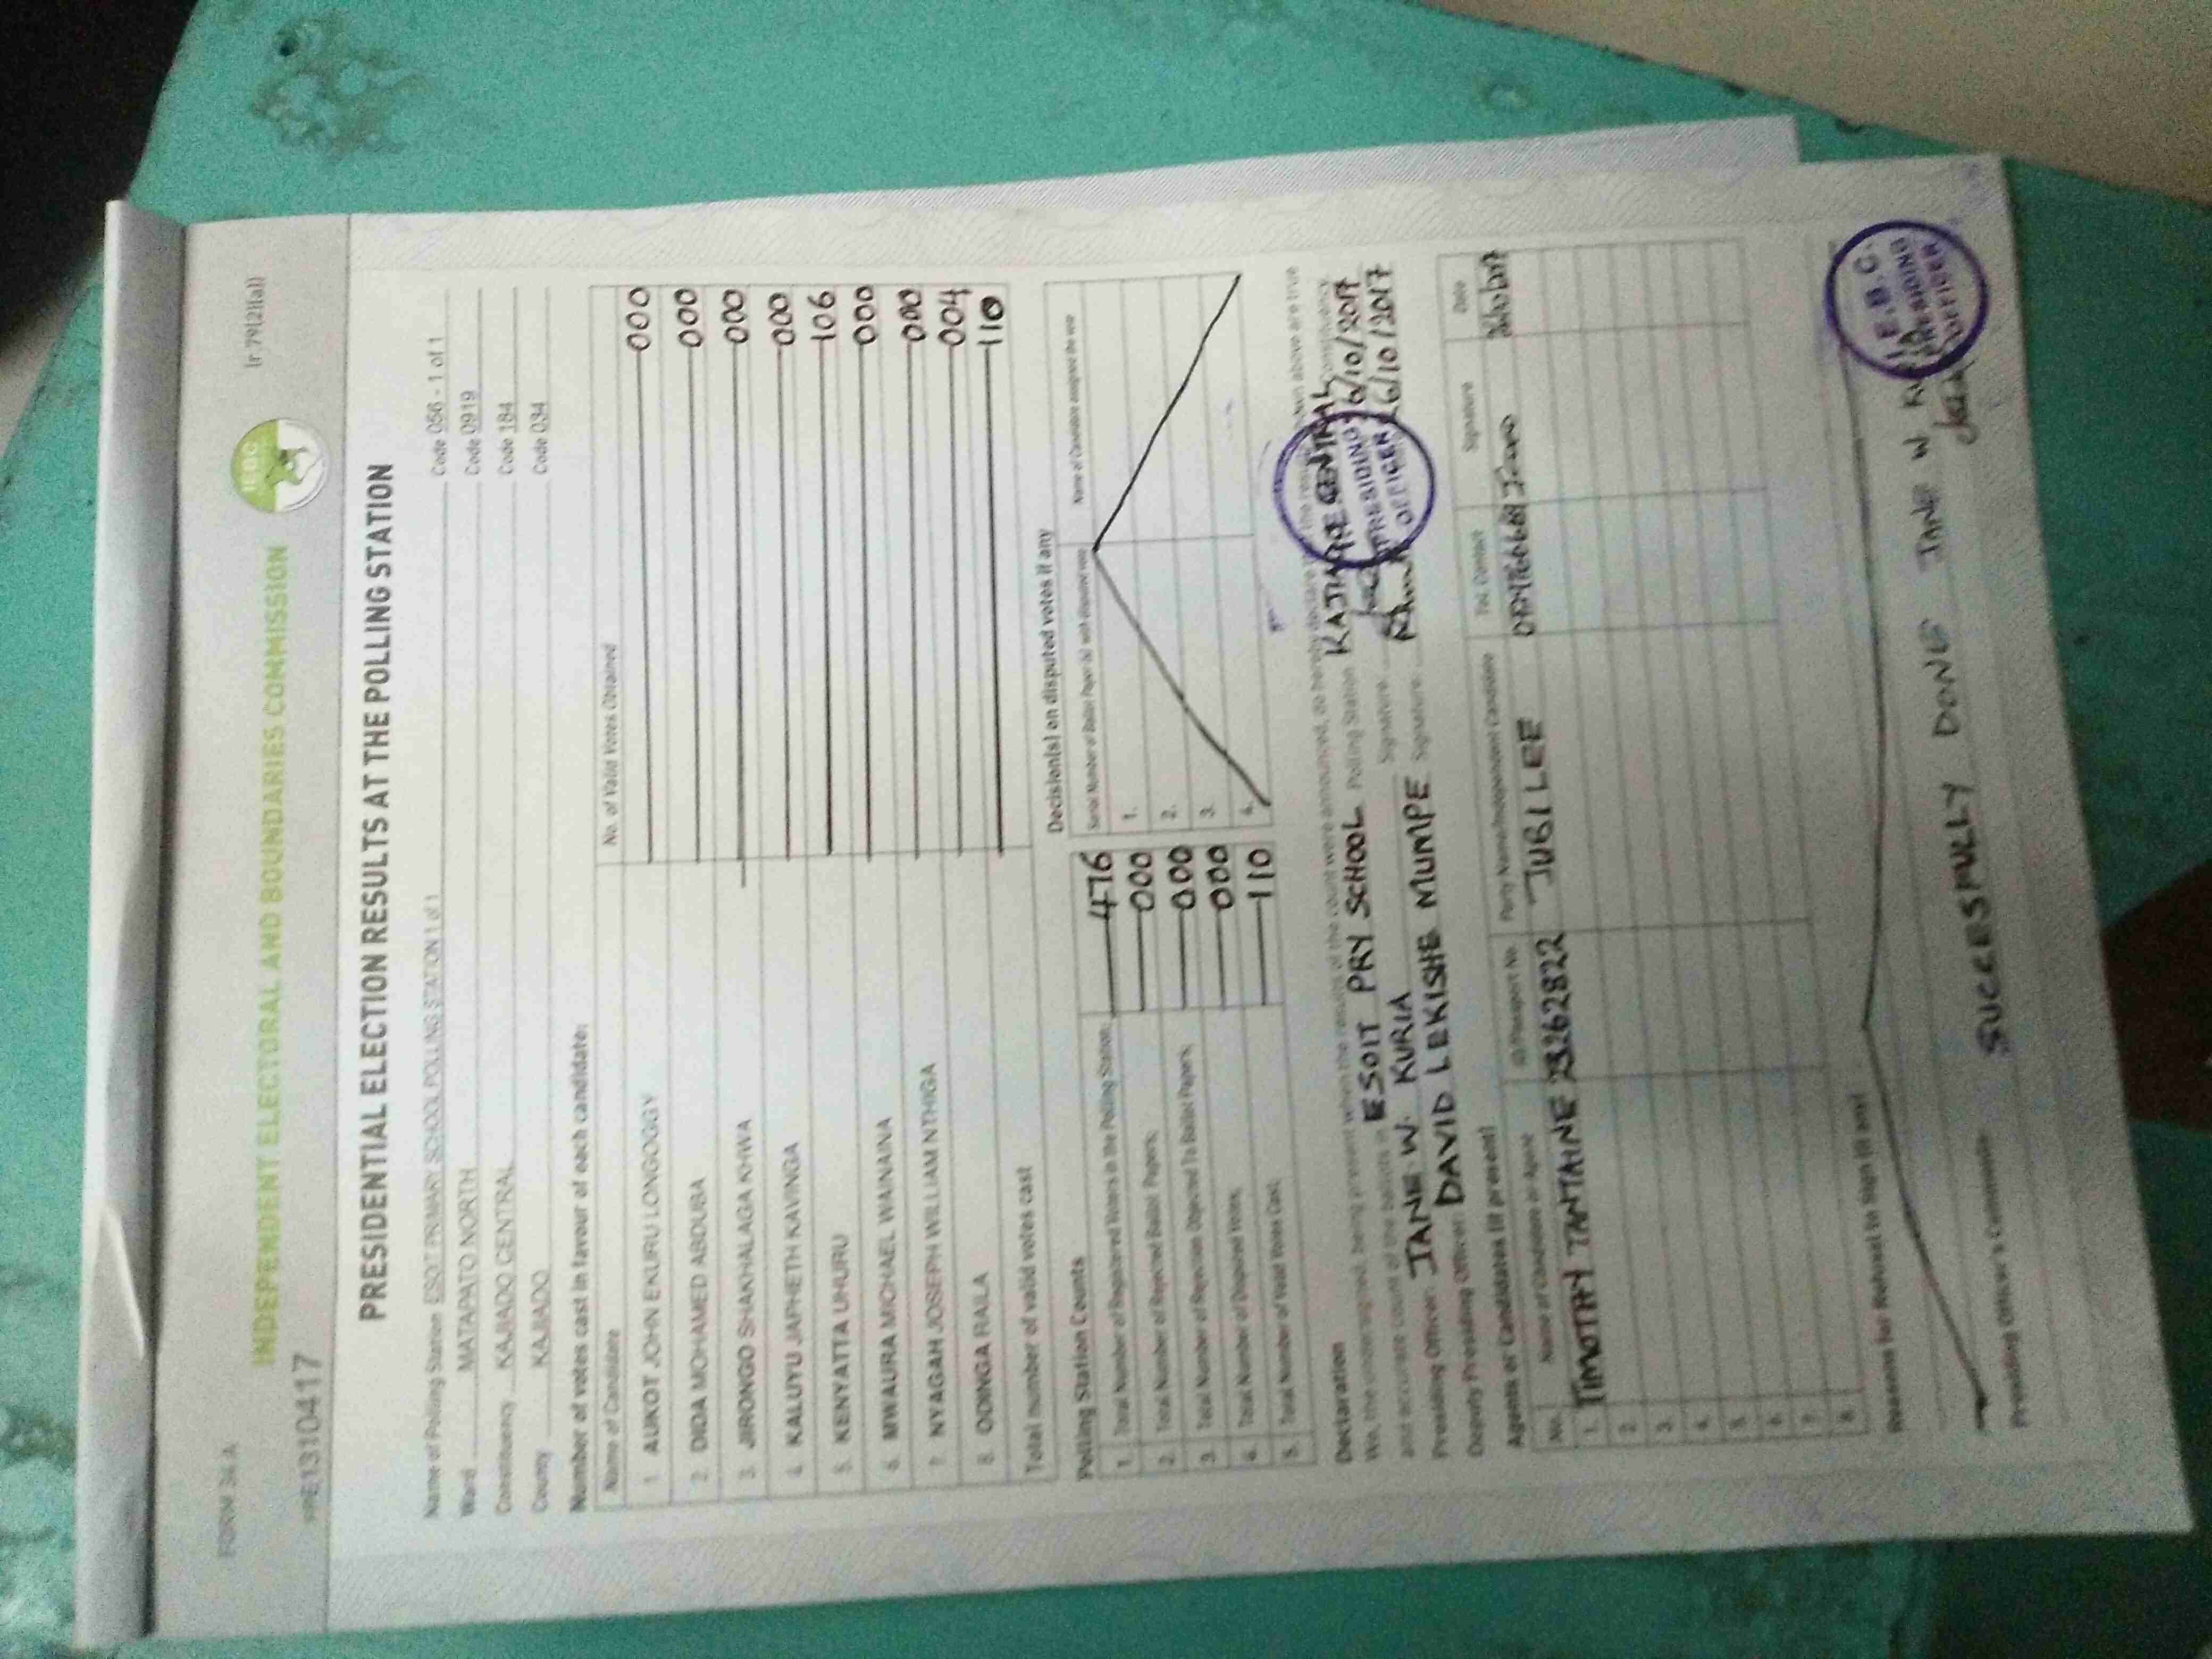 FORM 34 A
(r 79(2)(a))
PE1310417
INDEPENDENT ELECTORAL AND BOUNDARIES COMMISSION
IEBC
PRESIDENTIAL ELECTION RESULTS AT THE POLLING STATION
Name of Polling Station ESOIT PRIMARY SCHOOL POLLING STATION 1 of 1 Code 056 - 1 of 1
Ward MATAPATO NORTH Code 0919
Constituency KAJIADO CENTRAL Code 184
County KAJIADO Code 034
Number of votes cast in favour of each candidate:
Name of Candidate No. of Valid Votes Obtained
1. AUKOT JOHN EKURU LONGOGGY 000
2. DIDA MOHAMED ABDUBA 000
3. JIRONGO SHAKHALAGA KHWA 000
4. KALUYU JAPHETH KAVINGA 000
5. KENYATTA UHURU 106
6. MWAURA MICHAEL WAINAINA 000
7. NYAGAH JOSEPH WILLIAM NTHIGA 000
8. ODINGA RAILA 004
Total number of valid votes cast 110
Polling Station Counts
1. Total Number of Registered Voters in the Polling Station: 476
2. Total Number of Rejected Ballot Papers: 000
3. Total Number of Rejection Objected To Ballot Papers: 000
4. Total Number of Disputed Votes: 000
5. Total Number of Valid Votes Cast: 110
Decision(s) on disputed votes if any
Serial Number of Ballot Paper (s) with disputed vote Name of Candidate assigned the vote
1.
2.
3.
4.
Declaration
We, the undersigned, being present when the results of the count were announced, do hereby declare the results shown above are true
and accurate count of the ballots in ESOIT PRY SCHOOL Polling Station KAJIADO CENTRAL Constituency.
Presiding Officer: JANE W. KURIA Signature 26/10/2017
Deputy Presiding Officer: DAVID LEKISHE MUMPE Signature 26/10/2017
PRESIDING OFFICER
Agents or Candidates (if present)
No. Name of Candidate or Agent ID/Passport No. Party Name/Independent Candidate Tel. Contact Signature Date
1. TIMOTHY TANTAINE 23262822 JUBILEE
2.
3.
4.
5.
6.
7.
8.
Reasons for Refusal to Sign (if any)
Presiding Officer's Comments SUCCESSFULLY DONE JANE W. KURIA
I.E.B.C. PRESIDING OFFICER